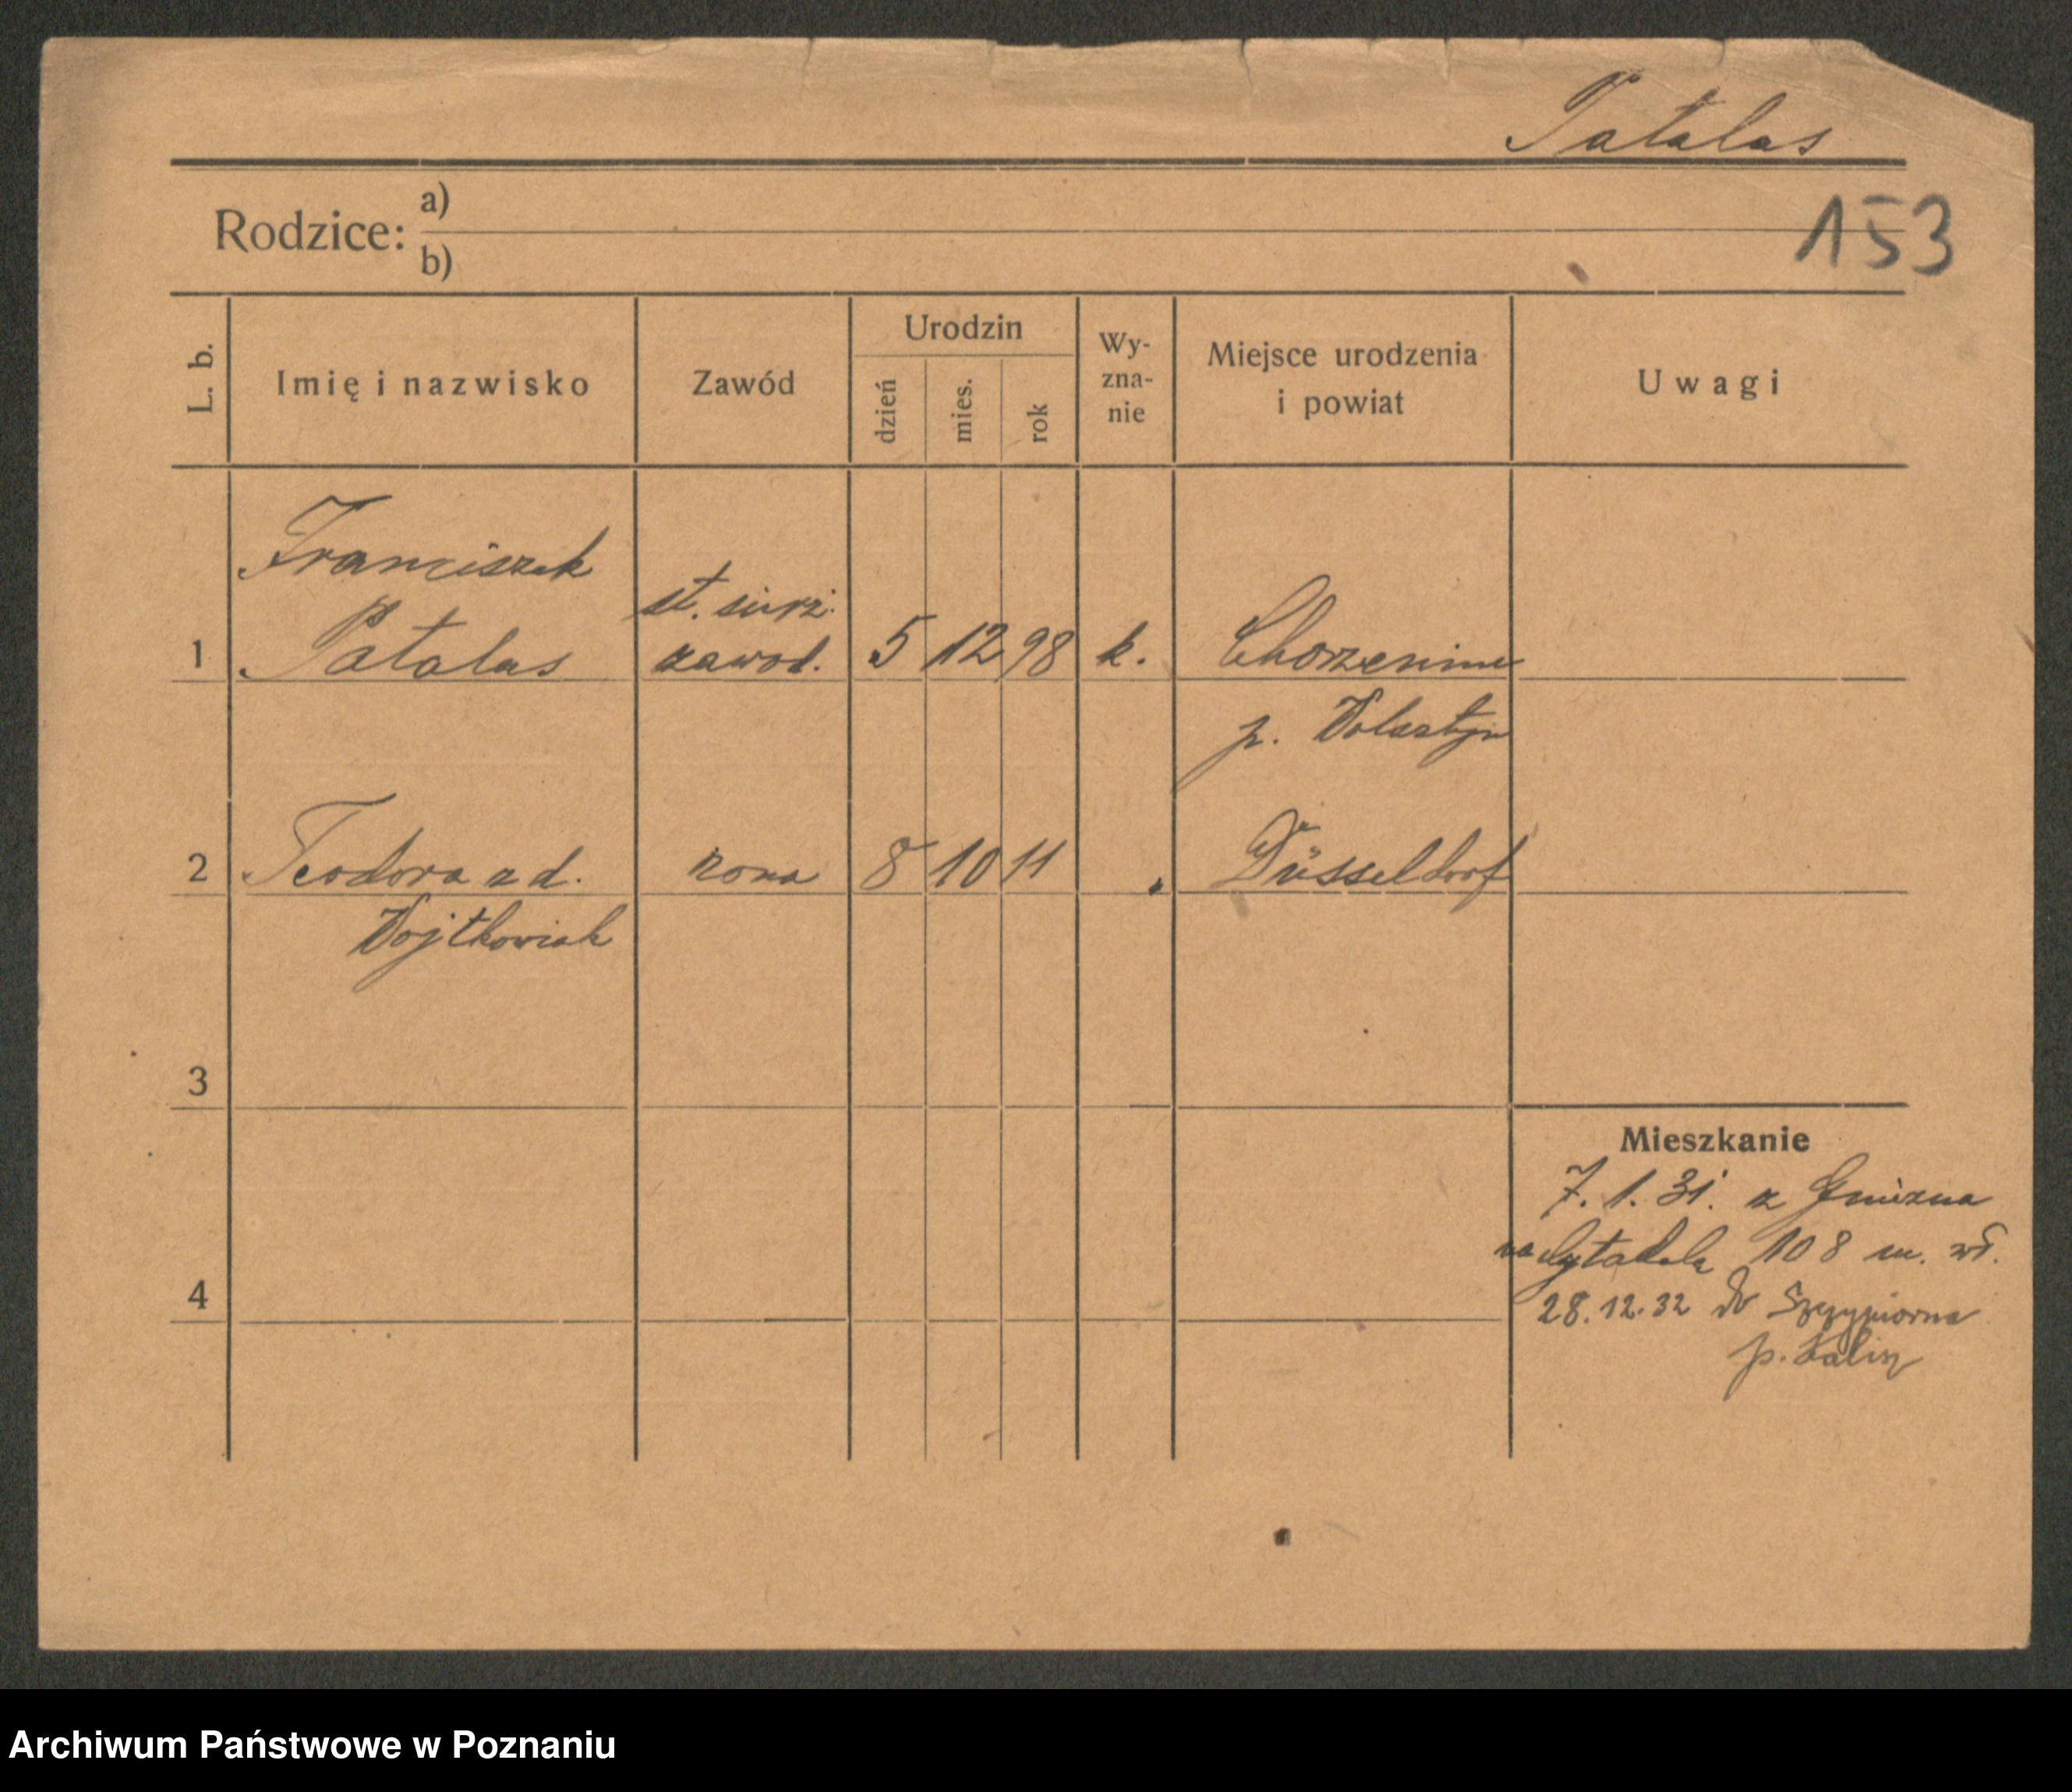 Patalas
153
Rodzice:
a)
b)
L. b.
Imię i nazwisko
Zawód
Urodzin
dzień
mies.
rok
Wy-
zna-
nie
Miejsce urodzenia
i powiat
Uwagi
Franciszek
st. sierż.
1 Patalas zawod. 5 12 98 k. Chorzemin
p. Wolsztyn
2 Teodora z d. żona 8 10 11 " Düsseldorf
Wojtkowiak
3
Mieszkanie
7. 1. 31. z Gniezna
na Cytadelę 108 m. wł.
4
28.12.32 do Szczypiorna
p. Kalisz
Archiwum Państwowe w Poznaniu